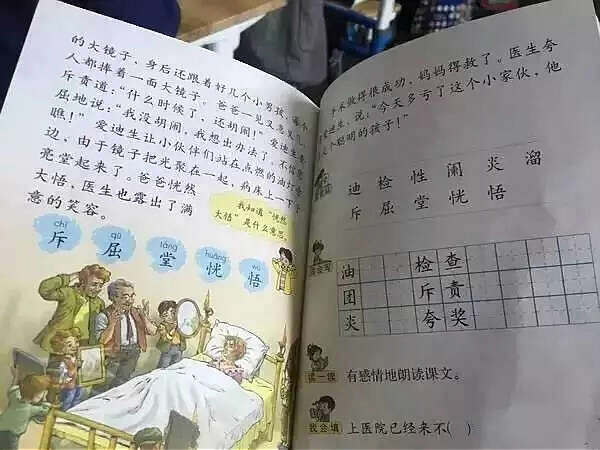 的大镜子，身后还跟着好几个小男孩，每个
人都捧着一面大镜子。爸爸一见又急又气，
斥责道：“什么时候了，还胡闹！”爱迪生委
屈地说：“我没胡闹，我想出办法了。不信您
瞧！”爱迪生让小伙伴们站在点燃的油灯旁
边，由于镜子把光聚在一起，病床上一下子
亮堂起来了。爸爸恍然
大悟，医生也露出了满
意的笑容。
我知道“恍然
大悟”是什么意思。
chì qū táng huǎng wù
斥 屈 堂 恍 悟
手术做得很成功，妈妈得救了。医生夸
爱迪生，说：“今天多亏了这个小家伙，他
个聪明的孩子！”
迪 检 性 闹 炎 溜
斥 屈 堂 恍 悟
我会写
油 检 查
团 斥 责
炎 夸 奖
读一读
有感情地朗读课文。
我会填
上医院已经来不( )